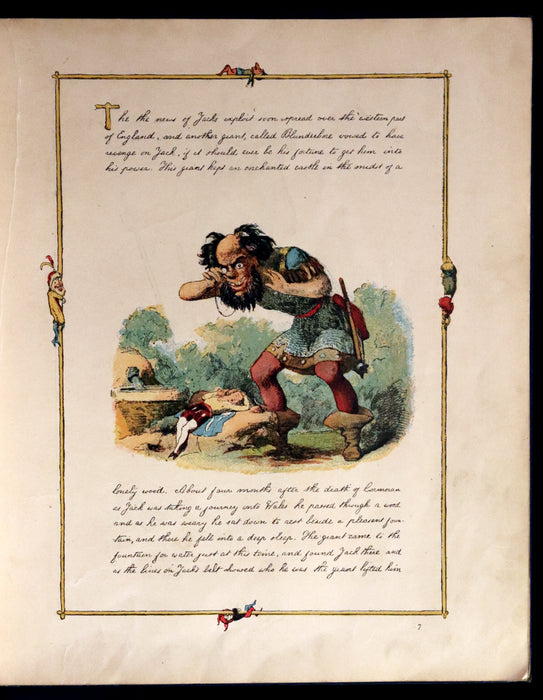 The the news of Jacks exploit soon spread over the western part
of England, and another giant, called Blunderbore vowed to have
revenge on Jack, if it should ever be his fortune to get him into
his power. This giant kept an enchanted castle in the midst of a
lonely wood. About four months after the death of Cormoran
as Jack was taking a journey into Wales he passed through a wood
and as he was weary he sat down to rest beside a pleasant foun-
tain, and there he fell into a deep sleep. The giant came to the
fountain for water just at this time, and found Jack there and
as the lines on Jacks belt showed who he was the giant lifted him
7